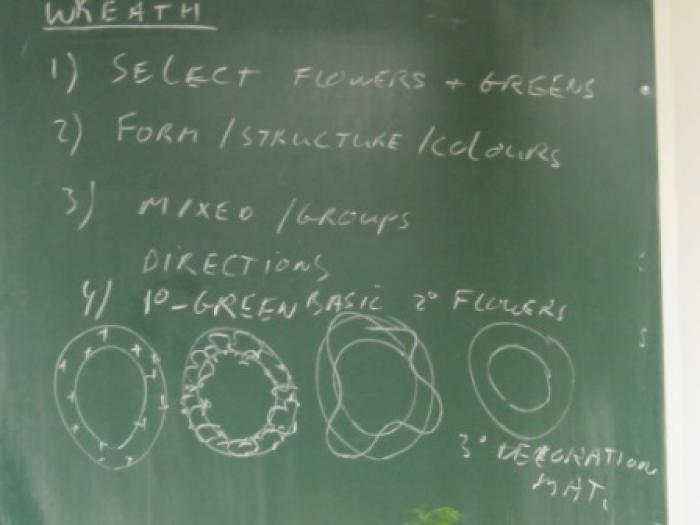 WREATH
1) SELECT FLOWERS + GREENS
2) FORM / STRUCTURE / COLOURS
3) MIXED / GROUPS
DIRECTIONS
4) 1°-GREEN BASIC 2° FLOWERS
3° DECORATION
MAT.